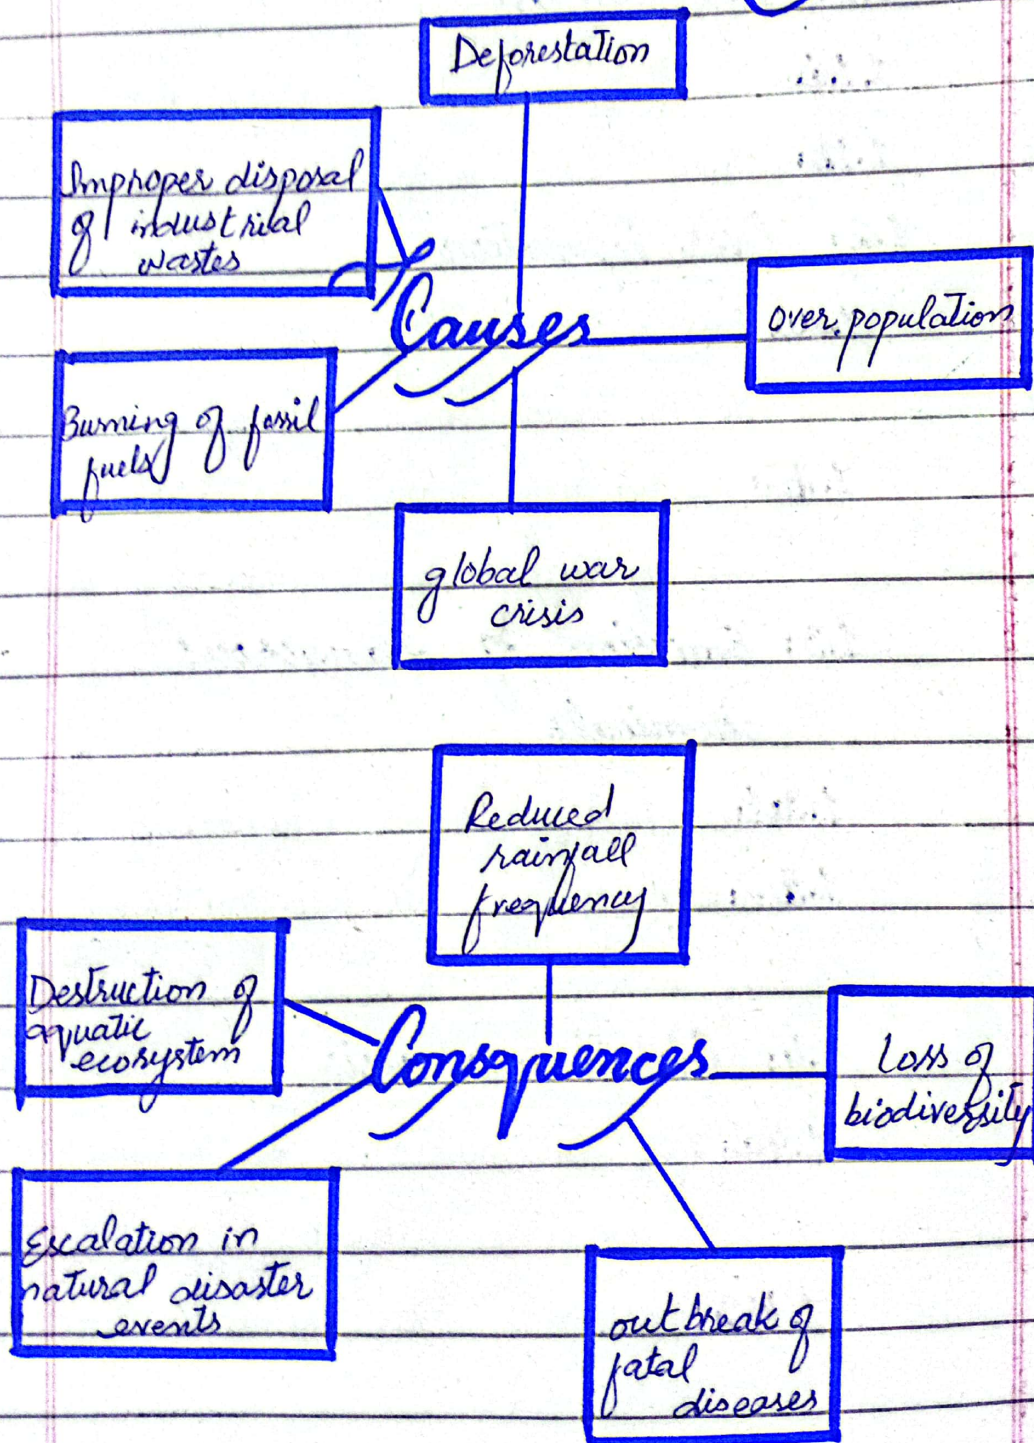 Deforestation
Improper disposal
of industrial
wastes
Causes
Over population
Burning of fossil
fuels
global war
crisis
Reduced
rainfall
frequency
Destruction of
aquatic
ecosystem
Consquences
Loss of
biodiversity
Escalation in
natural disaster
events
outbreak of
fatal
diseases